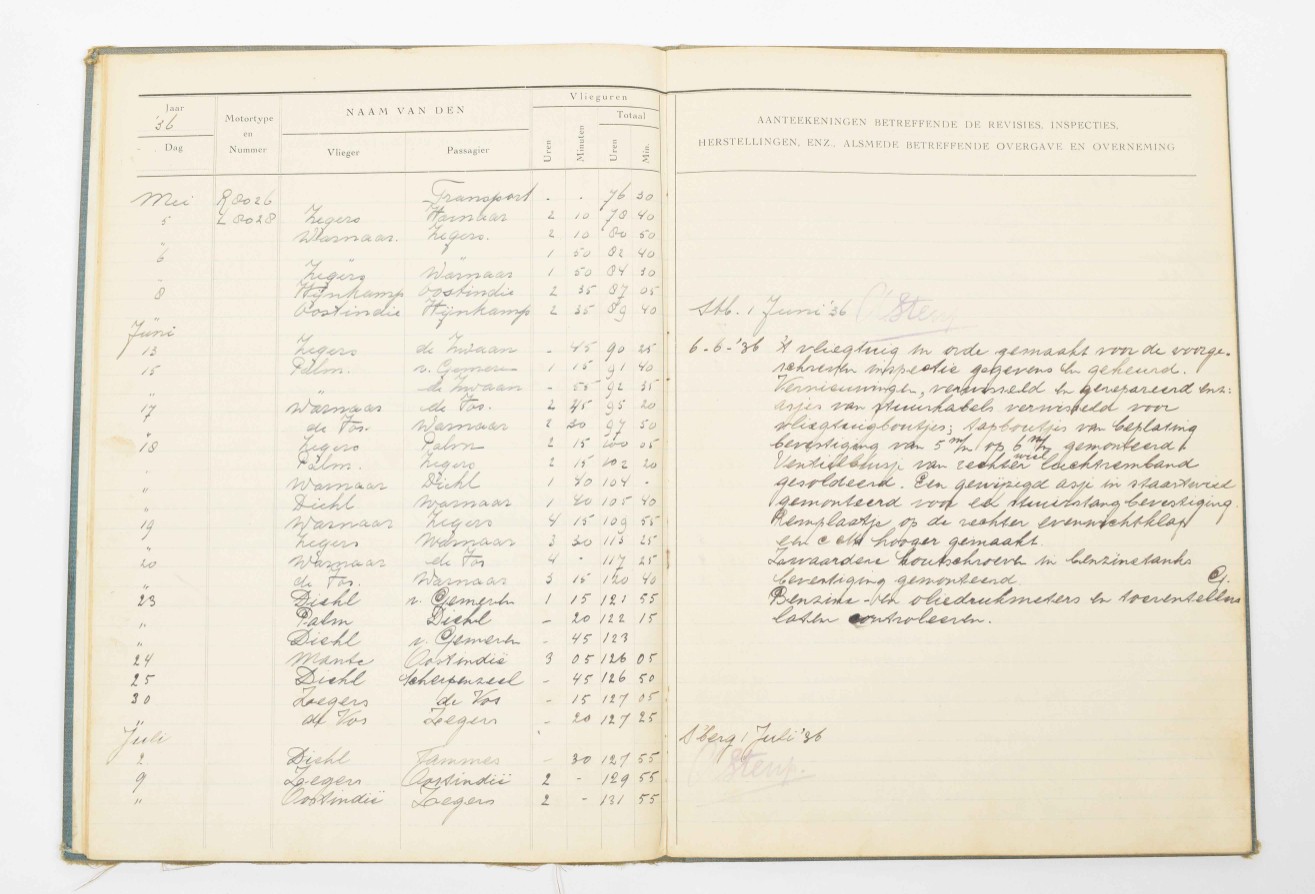 Jaar
'36
Dag
Motortype
en
Nummer
NAAM VAN DEN
Vlieger
Passagier
Vlieguren
Totaal
Uren
Minuten
Uren
Min.
Mei R 8026 Transport . . 76 30
5 L 8028 Zegers Warnaar 2 10 78 40
" Warnaar. Zegers. 2 10 80 50
6 " " 1 50 82 40
" Zegers Warnaar 1 50 84 30
8 Wijnkamp Oostindie 2 35 87 05
" Oostindie Wijnkamp 2 35 89 40
Juni
13 Zegers de Zwaan - 45 90 25
15 Palm. v. Gemeren 1 15 91 40
" " de Zwaan - 55 92 35
17 Warnaar de Vos. 2 45 95 20
" de Vos. Warnaar 2 30 97 50
18 Zegers Palm 2 15 100 05
" Palm. Zegers 2 15 102 20
" Warnaar Diehl 1 40 104 -
" Diehl Warnaar 1 40 105 40
19 Warnaar Zegers 4 15 109 55
" Zegers Warnaar 3 30 113 25
20 Warnaar de Vos 4 - 117 25
" de Vos. Warnaar 3 15 120 40
23 Diehl v. Gemeren 1 15 121 55
" Palm Diehl - 20 122 15
" Diehl v. Gemeren - 45 123
24 Mante Oostindië 3 05 126 05
25 Diehl Scherpenzeel - 45 126 50
30 Zegers de Vos - 15 127 05
" de Vos Zegers - 20 127 25
Juli
2 Diehl Tammes - 30 127 55
9 Zegers Oostindië 2 - 129 55
" Oostindië Zegers 2 - 131 55
AANTEEKENINGEN BETREFFENDE DE REVISIES, INSPECTIES,
HERSTELLINGEN, ENZ., ALSMEDE BETREFFENDE OVERGAVE EN OVERNEMING
Stb. 1 Juni '36
6-6-'36 't vliegtuig in orde gemaakt voor de voorge-
schreven inspectie gegevens en gekeurd.
Vernieuwingen, verwisseld en gerepareerd enz:
asjes van stuurkabels verwisseld voor
vliegtuigboutjes; tapboutjes van beplating
bevestiging van 5 m/m op 6 m/m gemonteerd.
wiel
Ventielbusje van rechter luchtremband
gesoldeerd. Een gewijzigd asje in staartwiel
gemonteerd voor de stuurstangbevestiging.
Remplaatje op de rechter evenwichtklap
een c.M. hooger gemaakt.
Zwaardere houtschroeven in benzinetanks
bevestiging gemonteerd.
Benzine- en oliedrukmeters en toerentellers
laten controleeren.
S'berg 1 Juli '36